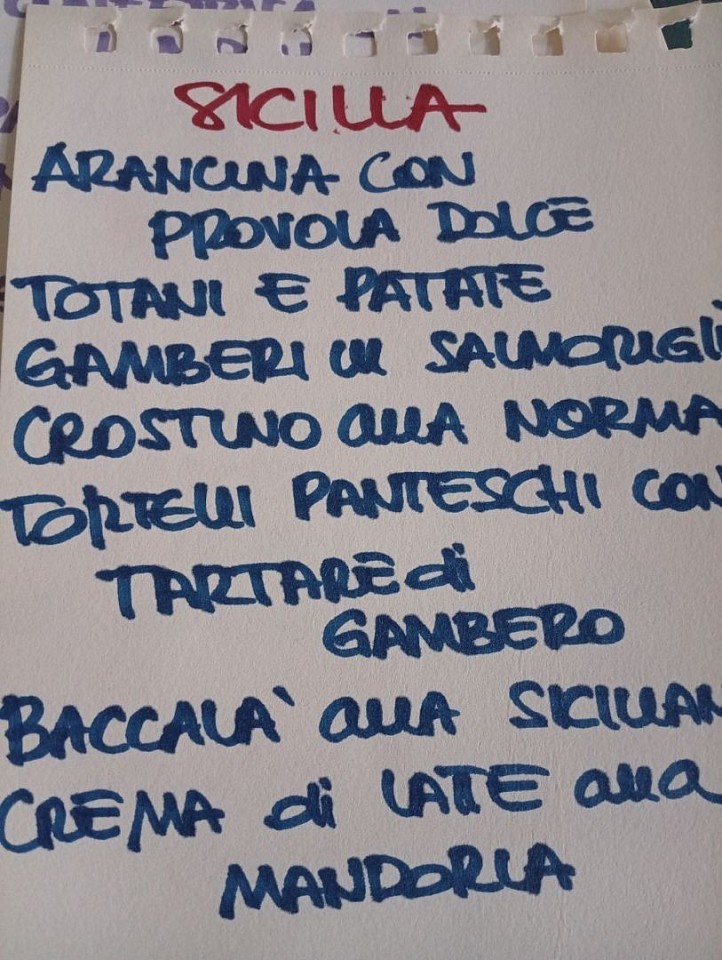 SICILIA
ARANCINA CON
PROVOLA DOLCE
TOTANI E PATATE
GAMBERI IN SALMORIGLI
CROSTINO alla NORMA
TORTELLI PANTESCHI CON
TARTARE di
GAMBERO
BACCALA' alla SICILIAN
CREMA di LATTE alla
MANDORLA